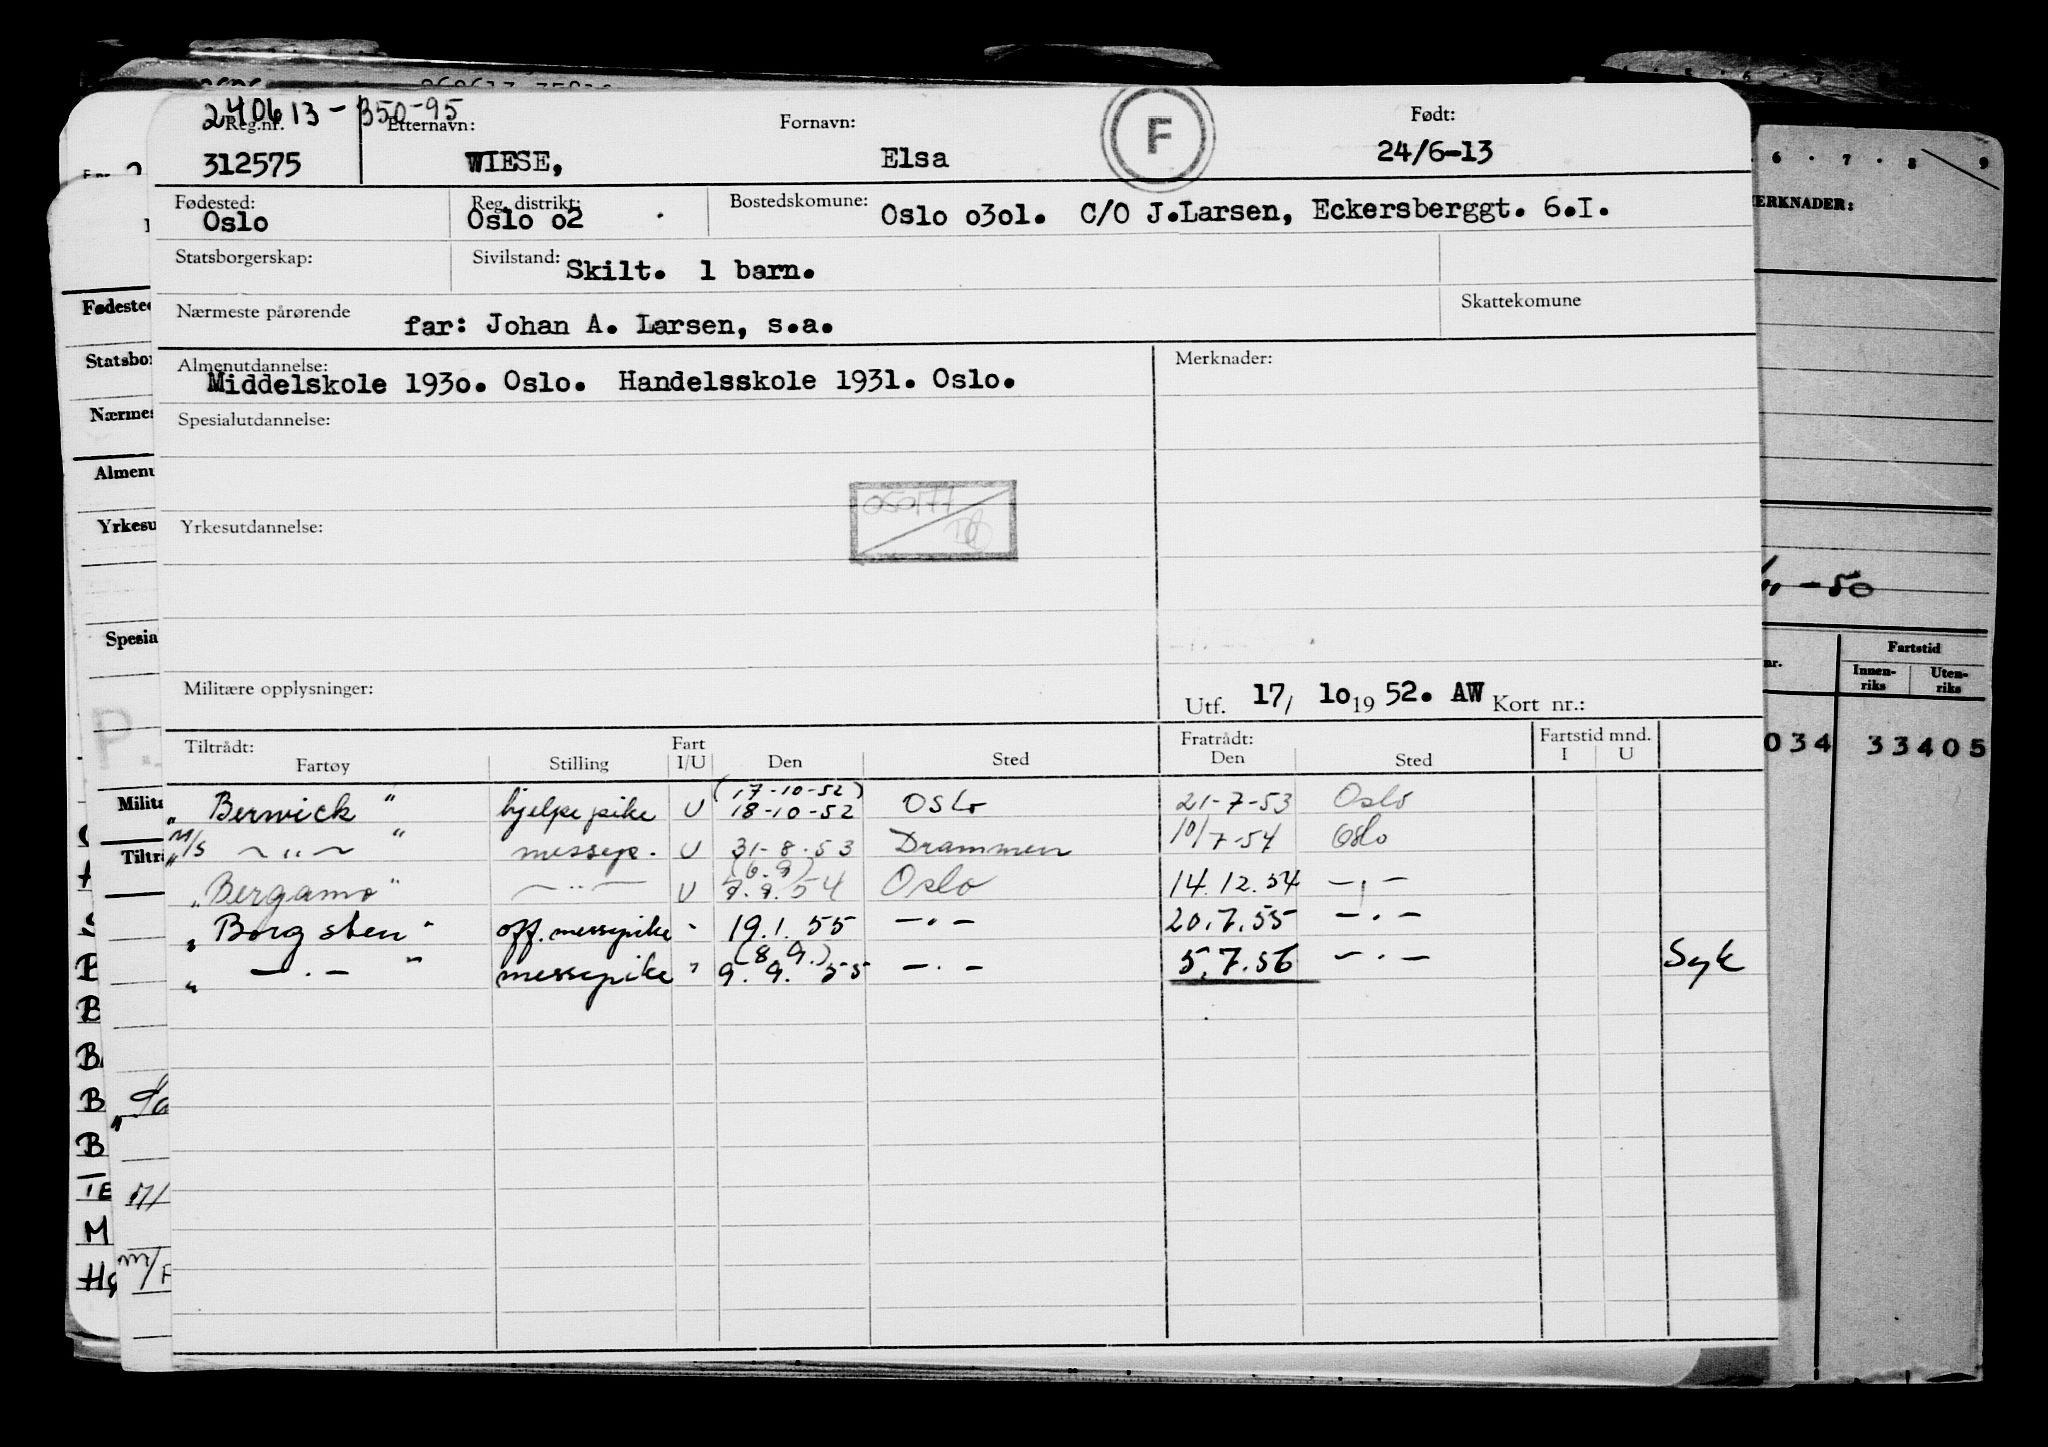 240613-35095
Reg.nr. Etternavn: Fornavn: F Født:
312575 WIESE, Elsa 24/6-13
Fødested: Reg. distrikt: Bostedskomune:
Oslo Oslo o2 Oslo o3ol. C/O J.Larsen, Eckersberggt. 6.I.
Statsborgerskap: Sivilstand: Skilt. 1 barn.
Nærmeste pårørende far: Johan A. Larsen, s.a. Skattekomune
Almenutdannelse: Merknader:
Middelskole 193o. Oslo. Handelsskole 1931. Oslo.
Spesialutdannelse:
Yrkesutdannelse:
Militære opplysninger:
Utf. 17/ 1o 19 52. AW Kort nr.:
Tiltrådt: Fart Fratrådt: Fartstid mnd.
Fartøy Stilling I/U Den Sted Den Sted I U
(17-10-52)
"Berwick" hjelpepike U 18-10-52 Oslo 21-7-53 Oslo
M/S " -"- " messep. U 31-8-53 Drammen 10/7-54 Oslo
(6.9)
"Bergamo" -"- U 7.9.54 Oslo 14.12.54 -"-
"Borgsten" off.messepike " 19.1.55 -"- 20.7.55 -"-
(8.9.)
" -"- " messepike " 9.9.55 -"- 5.7.56 -"- Syk
MERKNADER:
-50
Fartstid
nr. Innenriks Utenriks
034 33405
6 7 8 9